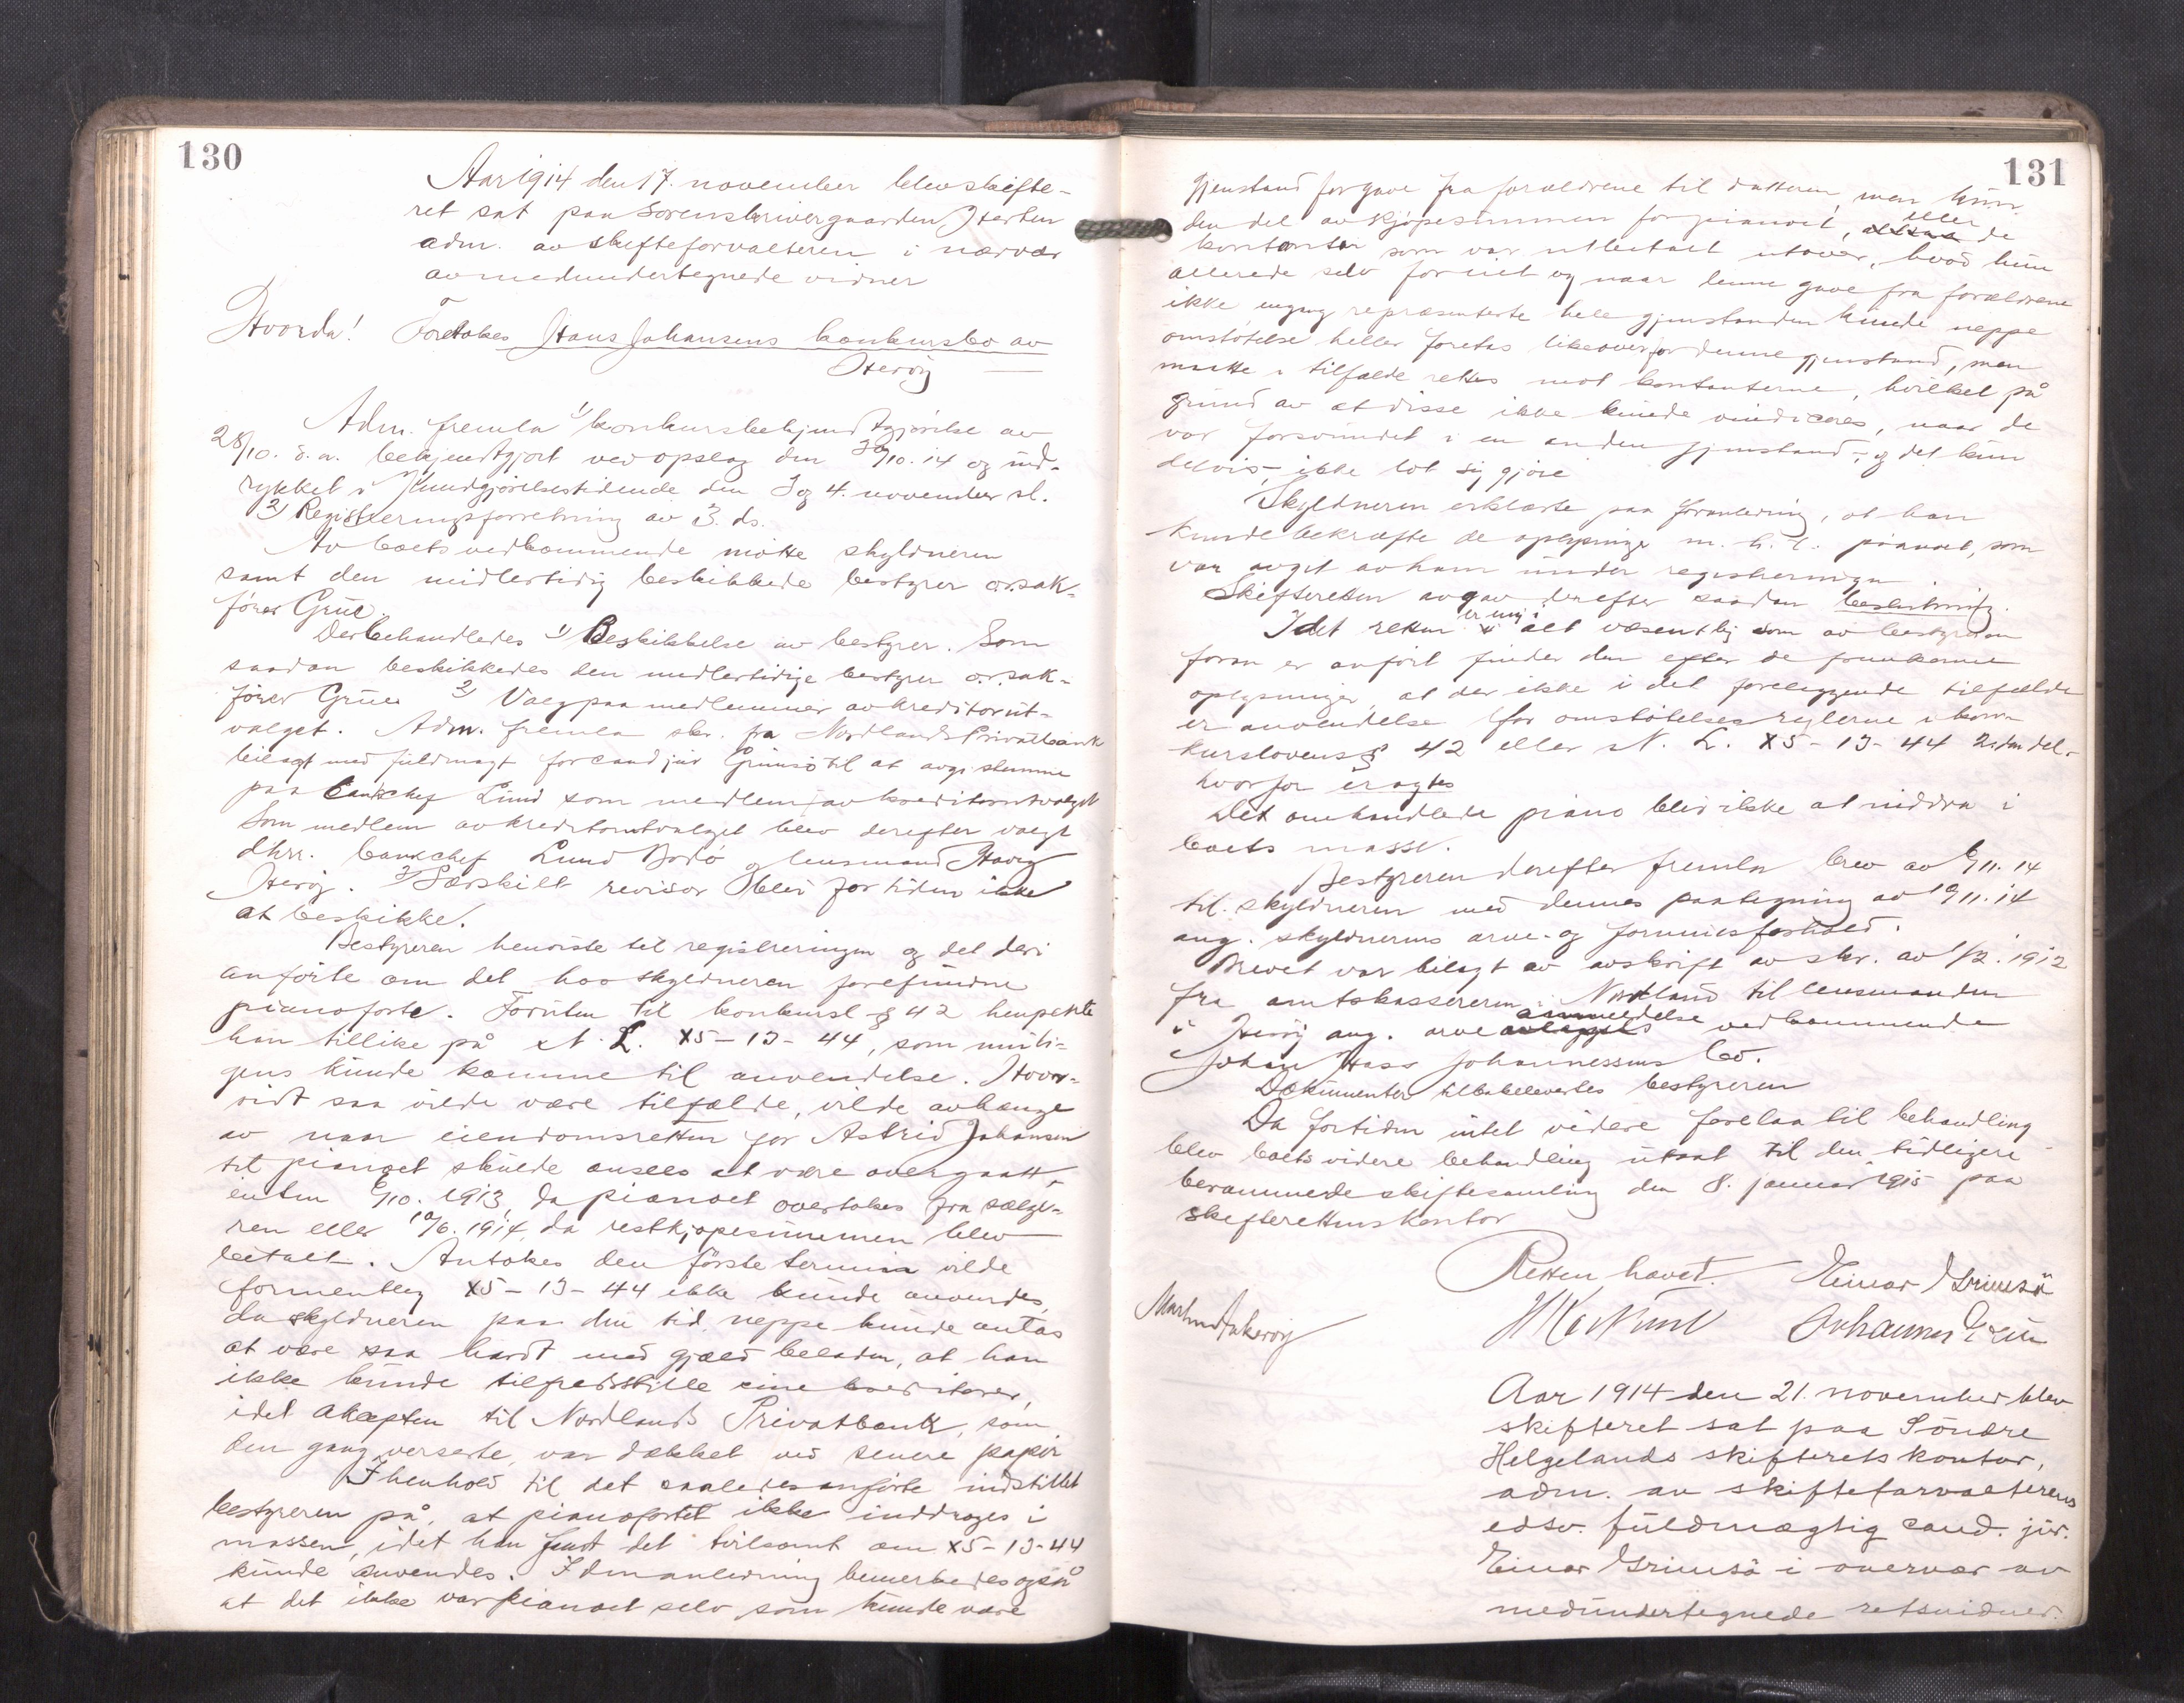 130
Aar 1914 den 17. november blev skifte-
ret sat paa Sorenskrivergaarden
adm. av skifteforvalteren i nærvær
av medundertegnede vidner
Hvorda! Foretokes Hans Johansens konkursbo av
Herøy
Adm. fremla 1) konkursbekjendtgjørelse av
28/10. d. a. bekjendtgjort ved opslag den 30/10. 14 og ind-
rykket i Kundgjørelsestidende den 3 og 4. november sl.
2) Registreringsforretning av 3. ds.
Av boets vedkommende møtte skyldneren
samt den midlertidig beskikkede bestyrer o.r.sak-
fører Grüe.
Der behandledes 1) Beskikkelse av bestyrer. Som
saadan beskikkedes den midlertidige bestyrer o.r.sak-
fører Grüe 2) Valg paa medlemmer av kreditorut-
valget. Adm. fremla skr. fra Nordlands Privatbank
bilagt med fuldmagt for cand jur Grimsö til at avgi stemme
paa bankchef Lund som medlem av kreditorutvalget
Som medlem av kreditorutvalget blev derefter valgt
dhrr. bankchef Lund Bodö og lensmand Havig
Herøy. 3) Særskilt revisor blev for tiden ikke
at beskikke.
Bestyreren henviste til registreringen og det deri
anførte om det hos skyldneren forefundne
pianoforte. Foruten til konkursl § 42 henpekte
han tillike på N. L. X5-13-44, som muli-
gens kunde komme til anvendelse. Hvor-
vidt saa vilde være tilfælde, vilde avhænge
av naar eiendomsretten for Astrid Johansen
til pianoet skulde ansees at være overgaatt,
enten 6/10. 1913, da pianoet overtokes fra sælge-
ren eller 10/6. 1914, da restkjøpesummen blev
betalt. Antokes den første termin vilde
formentlig X5-13-44 ikke kunde anvendes,
da skyldneren paa den tid neppe kunde antas
at være saa hardt med gjæld beladen, at han
ikke kunde tilfredsstille sine kreditorer,
idet akcepten til Nordlands Privatbank, som
den gang verserte, var dækket ved senere papir
I henhold til det saaledes anførte indstillet
bestyreren på, at pianofortet ikke inddrages i
massen, idet han fandt det tvilsomt om X5-13-44
kunde anvendes. I den anledning bemerkedes også
at det ikke var pianoet selv, som kunde være
131
gjenstand for gave fra forældrene til datteren, men kun
den del av kjøpesummen for pianoet, eller de
kontanter som var utbetalt utover, hvad hun
allerede selv forut og naar denne gave fra forældrene
ikke engang repræsenterte hele gjenstanden kunde neppe
omstøtelse heller foretas likeoverfor denne gjenstand, men
maatte i tilfælde rettes mot kontanterne, hvilket på
grund av at disse ikke kunde vindiceres, naar de
var forsvundet i en anden gjenstand, og det kun
delvis, ikke lot sig gjøre
Skyldneren erklærte paa foranledning, at han
kunde bekræfte de oplysninger m. h. t. pianoet, som
var avgit av ham under registreringen.
Skifteretten avgav derefter saadan beslutning.
Idet retten er enig i alt væsentlig som av bestyreren
foran er anført finder den efter de fremkomne
oplysninger, at der ikke i det foreliggende tilfælde
er anvendelse for omstøtelsesreglerne i kon-
kurslovens § 42 eller N. L. X5-13-44 2. den del.
hvorfor eragtes
Det omhandlede piano blir ikke at inddra i
boets masse.
Bestyreren derefter fremla brev av 6/11. 14
til skyldneren med dennes paategning av 10/11. 14
ang. skyldnerens arve- og formuesforhold.
Brevet var bilagt av avskrift av skr. av 1/2. 1912
fra amtskassereren i Nordland til lensmanden
i Herøy ang. arveanmeldelse vedkommende
Johan Hass Johannessens bo.
Dokumenter tilbakelevertes bestyreren
Da fortiden intet videre forelaa til behandling
blev boets videre behandling utsat til den tidligere
berammede skiftesamling den 8. januar 1915 paa
skifterettens kontor
Retten hævet. Einar Grimsö
Johannes Grüe
Aar 1914 den 21. november blev
skifteret sat paa Söndre
Helgelands skifterets kontor,
adm. av skifteforvalterens
edsv. fuldmægtig cand. jur.
Einar Grimsö i overvær av
medundertegnede retsvidner.